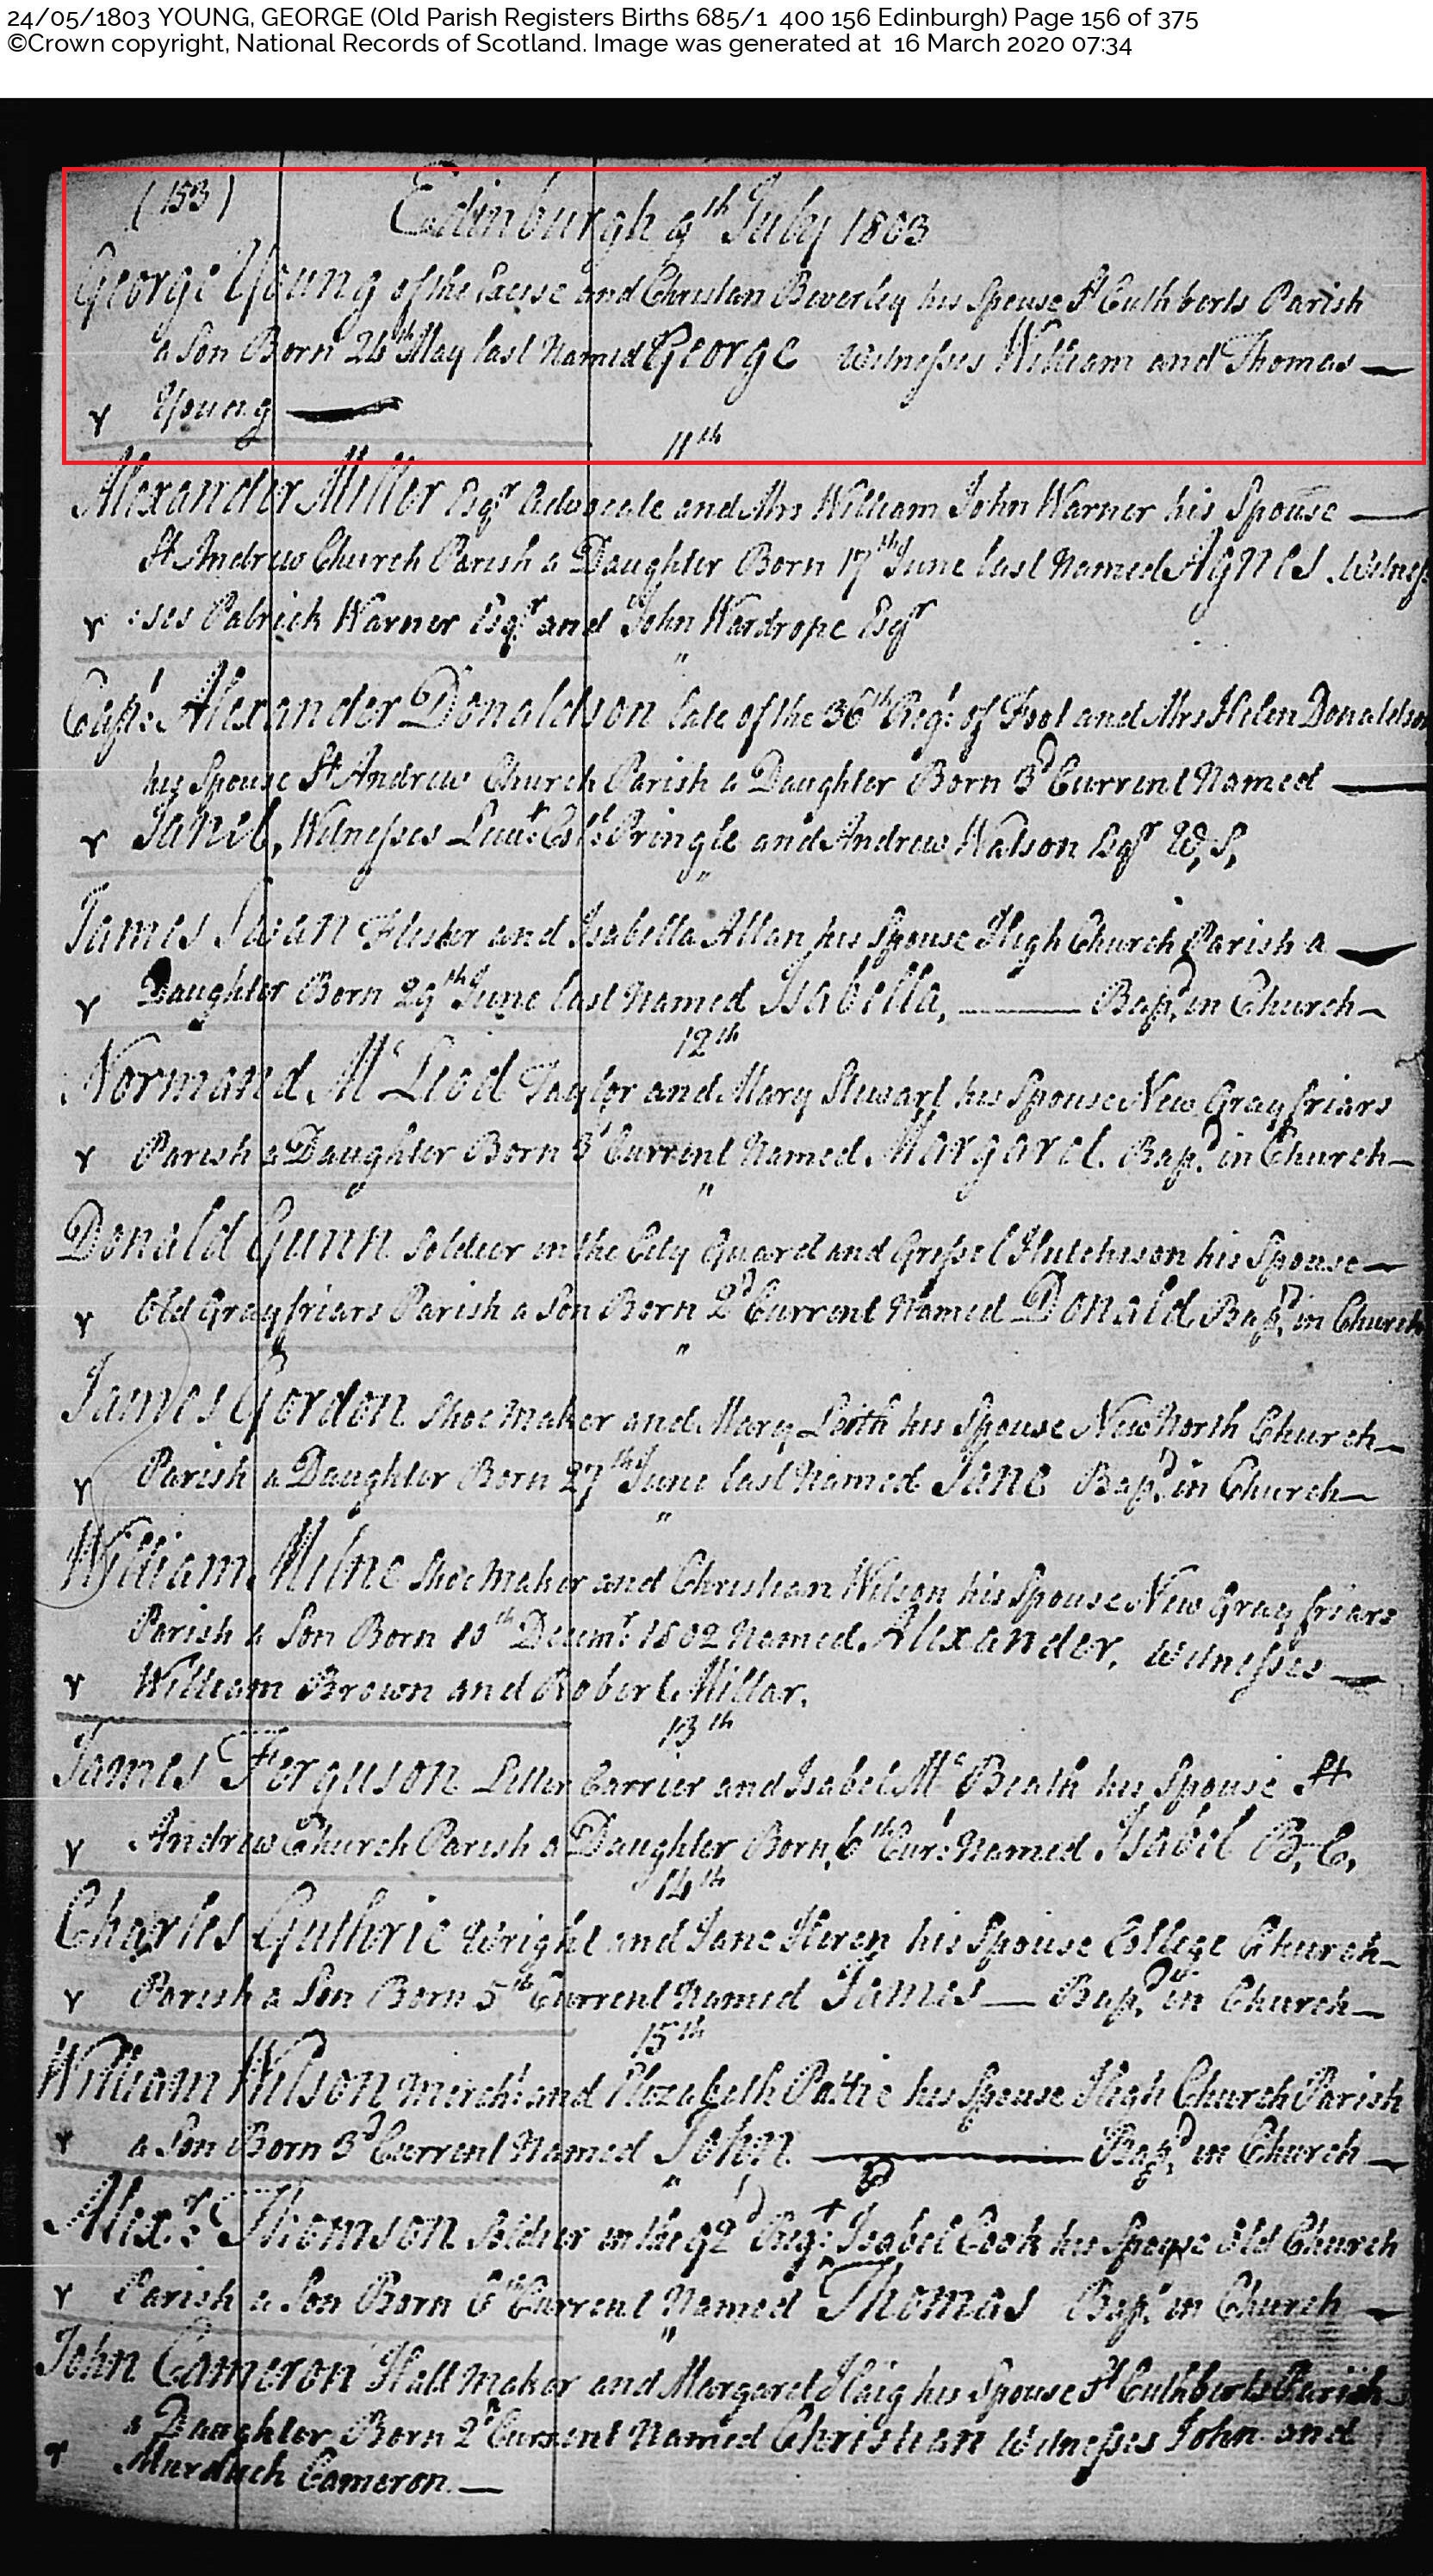 24/05/1803 YOUNG, GEORGE (Old Parish Registers Births 685/1 400 156 Edinburgh) Page 156 of 375
©Crown copyright, National Records of Scotland. Image was generated at 16 March 2020 07:34
(153) Edinburgh 9th July 1803
George Young of the Excise and Christian Beverley his Spouse St Cuthberts Parish
a Son Born 24th May last Named George Witnesses William and Thomas —
Young —
11th
Alexander Miller Esqr Advocate and Mrs William John Warner his Spouse —
St Andrew Church Parish a Daughter Born 17th June last Named Agnes. Witnes
:ses Patrick Warner Esqr and John Wardrope Esqr
"
Capt: Alexander Donaldson late of the 36th Regt: of Foot and Mrs Helen Donaldson
his Spouse St Andrew Church Parish a Daughter Born 3d Current Named —
Janet, Witnesses Lieut: Coll: Pringle and Andrew Watson Esqr W, S,
"
James Swan Flesher and Isabella Allan his Spouse High Church Parish a —
Daughter Born 29th June last Named Isabella, — Bapd, in Church —
12th
Normand McLeod Taylor and Mary Stewart his Spouse New Grayfriars
Parish a Daughter Born 3d Current Named Margaret. Bapd, in Church —
"
Donald Gunn Soldier in the City Guard and Grissel Hutchison his Spouse —
Old Grayfriars Parish a Son Born 2d Current Named Donald Bapd, in Church
"
James Gordon Shoemaker and Mary Leith his Spouse New North Church —
Parish a Daughter Born 27th June last Named Jane Bapd, in Church —
"
William Milne Shoemaker and Christian Wilson his Spouse New Grayfriars
Parish a Son Born 10th Decemr: 1802 Named Alexander, Witnesses —
William Brown and Robert Millar.
13th
James Ferguson Letter Carrier and Isabel McBeath his Spouse St
Andrew Church Parish a Daughter Born, 6th Curt: Named Isabel B, C,
14th
Charles Guthrie Wright and Jane Heren his Spouse College Church —
Parish a Son Born 5th Current Named James — Bapd, in Church —
15th
William Wilson Mercht: and Elizabeth Pattie his Spouse High Church Parish
a Son Born 3d Current Named John — Bapd, in Church —
"
Alexr: Thomson Soldier in the 92d Regt: Isabel Cook his Spouse Old Church
Parish a Son Born 6th Current Named Thomas Bapd, in Church —
"
John Cameron Hatt Maker and Margaret Haig his Spouse St Cuthberts Parish
a Daughter Born 2d Current Named Christian Witnesses John and
Murdoch Cameron. —